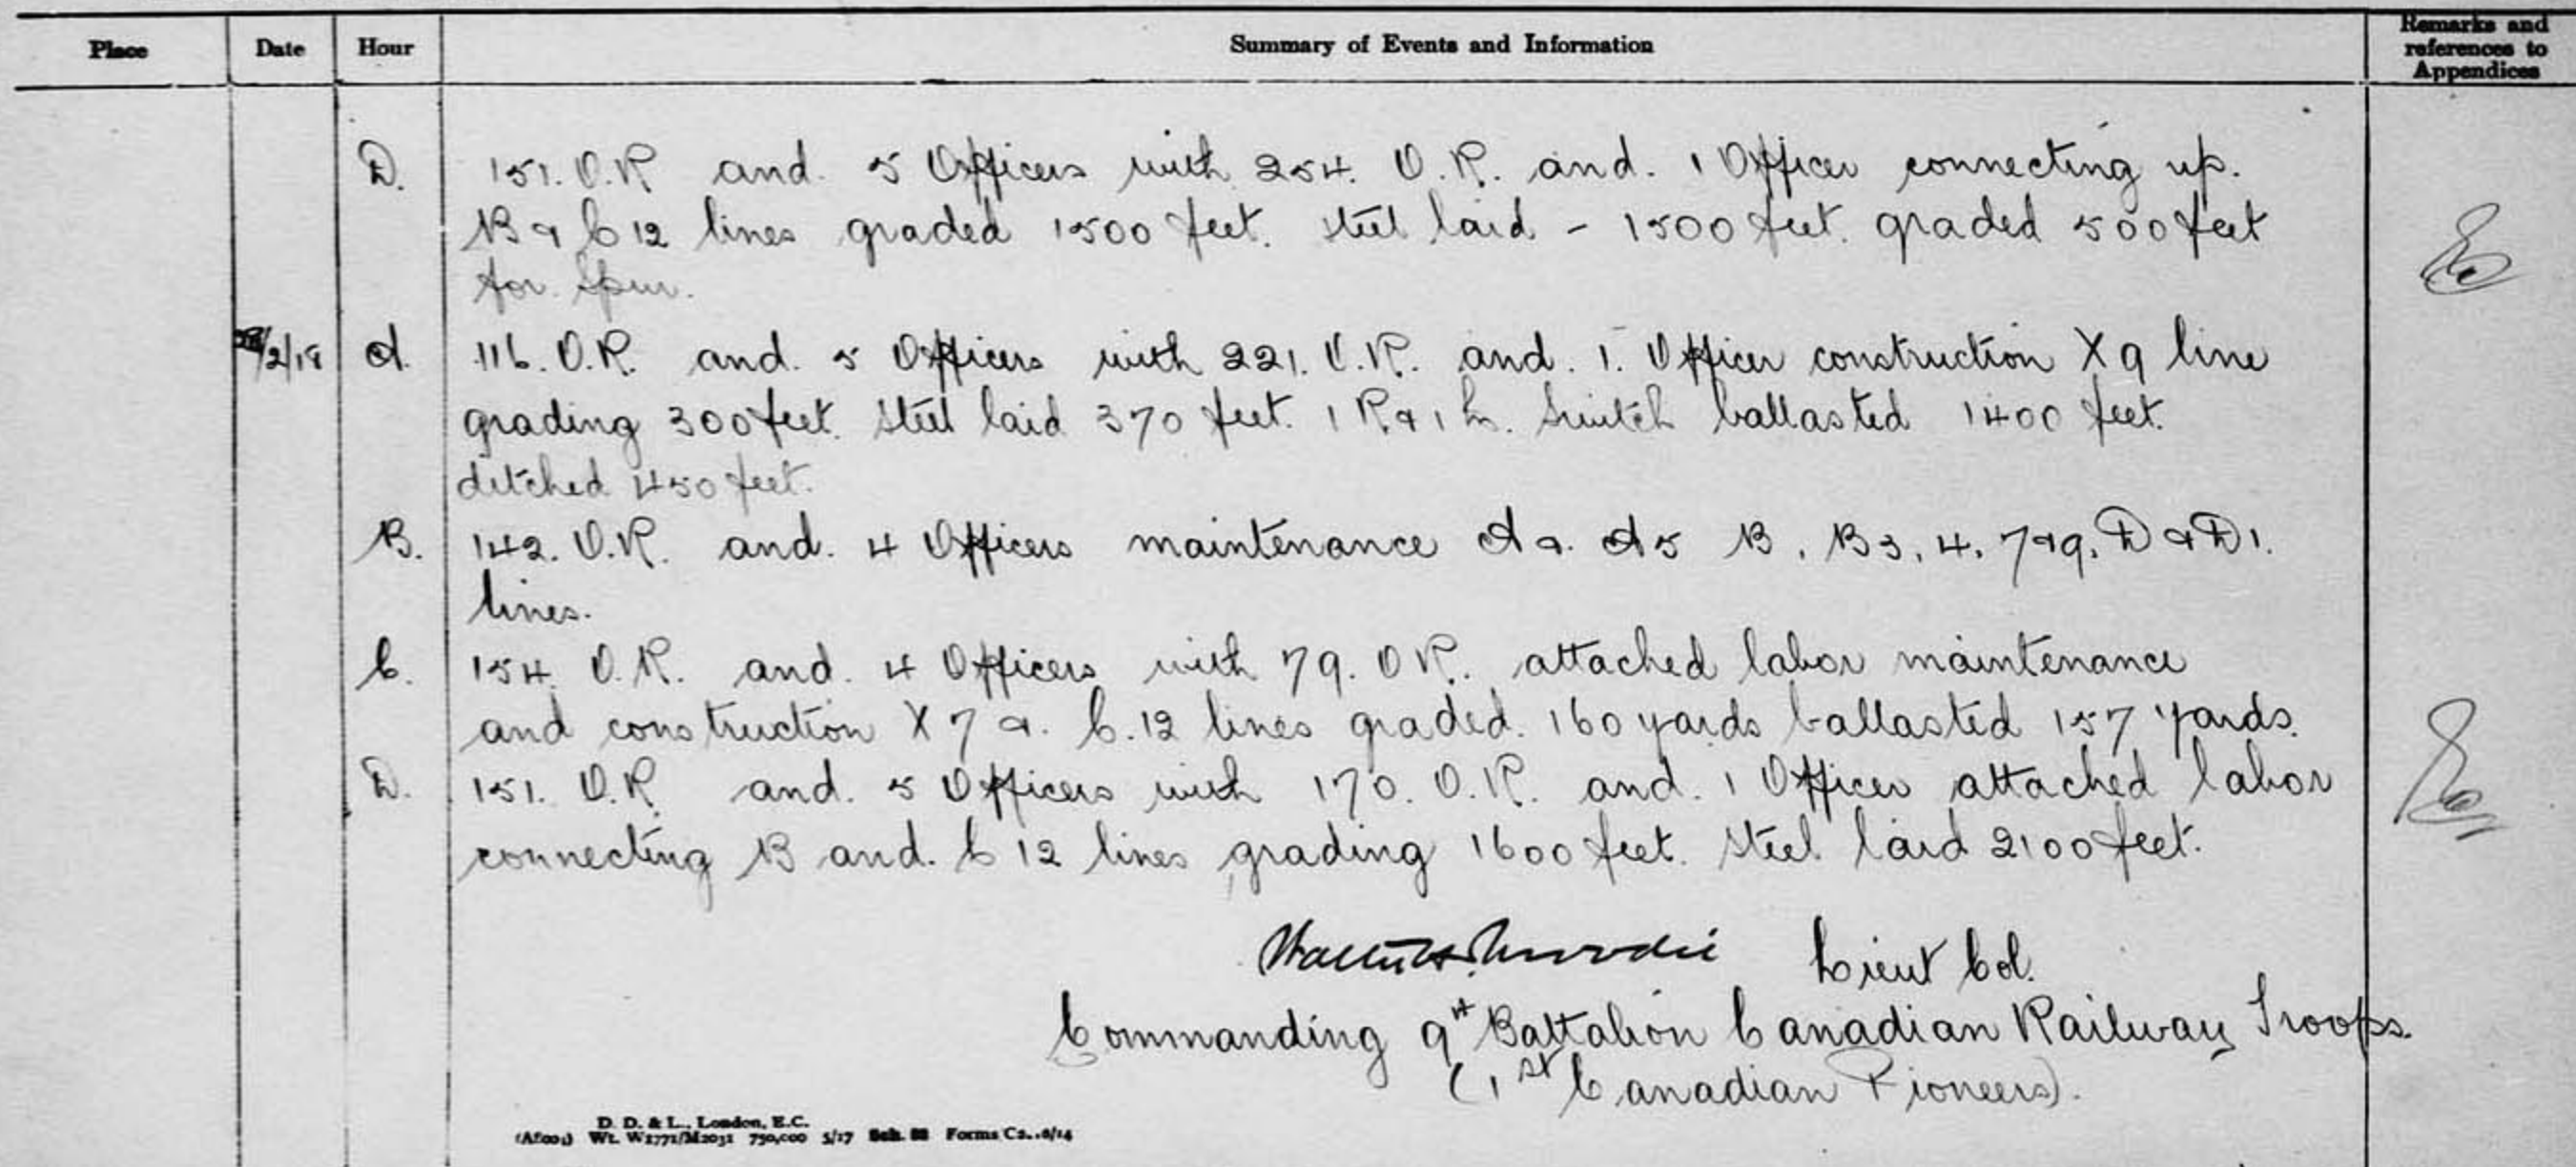 Place Date Hour Summary of Events and Information Remarks and references to Appendices
D. 151. O.R and. 5 Officers with 254. O.R. and. 1 Officer connecting up.
B & C 12 lines graded 1500 feet. steel laid - 1500 feet. graded 500 feet
for. Spur.
/2/18 A. 116. O.R. and. 5 Officers with 221. O.R. and. 1. Officer construction X 9 line
grading 300 feet. steel laid 370 feet. 1 R. & 1 L. Switch ballasted 1400 feet.
ditched 450 feet.
B. 142. O.R. and. 4 Officers maintenance A &. A5 B, B3, 4, 7 & 9, D & D1.
lines.
C. 154. O.R. and. 4 Officers with 79. O R. attached labor maintenance
and construction X 7 &. C.12 lines graded. 160 yards ballasted 157 yards.
D. 151. O.R. and. 5 Officers with 170. O.R. and. 1 Officer attached labor
connecting B and. C 12 lines grading 1600 feet. steel laid 2100 feet.
Lieut Col.
Commanding 9th Battalion Canadian Railway Troops.
(1st Canadian Pioneers).
D. D. & L., London, E.C.
Wt. W1771/M2031 750,000 5/17 Sch. Forms